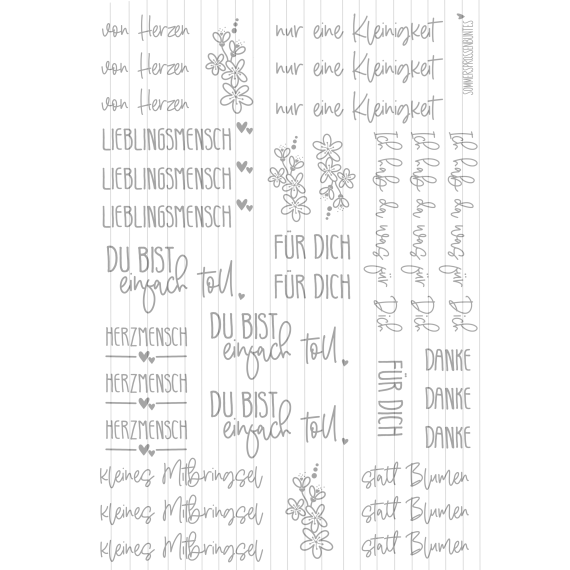 von Herzen
von Herzen
von Herzen
nur eine Kleinigkeit
nur eine Kleinigkeit
nur eine Kleinigkeit
SOMMERSPROSSENBUNTES
LIEBLINGSMENSCH
LIEBLINGSMENSCH
LIEBLINGSMENSCH
Ich hab da was für Dich
Ich hab da was für Dich
Ich hab da was für Dich
FÜR DICH
FÜR DICH
DU BIST
einfach toll.
HERZMENSCH
HERZMENSCH
HERZMENSCH
DU BIST
einfach toll.
DU BIST
einfach toll.
FÜR DICH
DANKE
DANKE
DANKE
kleines Mitbringsel
kleines Mitbringsel
kleines Mitbringsel
statt Blumen
statt Blumen
statt Blumen